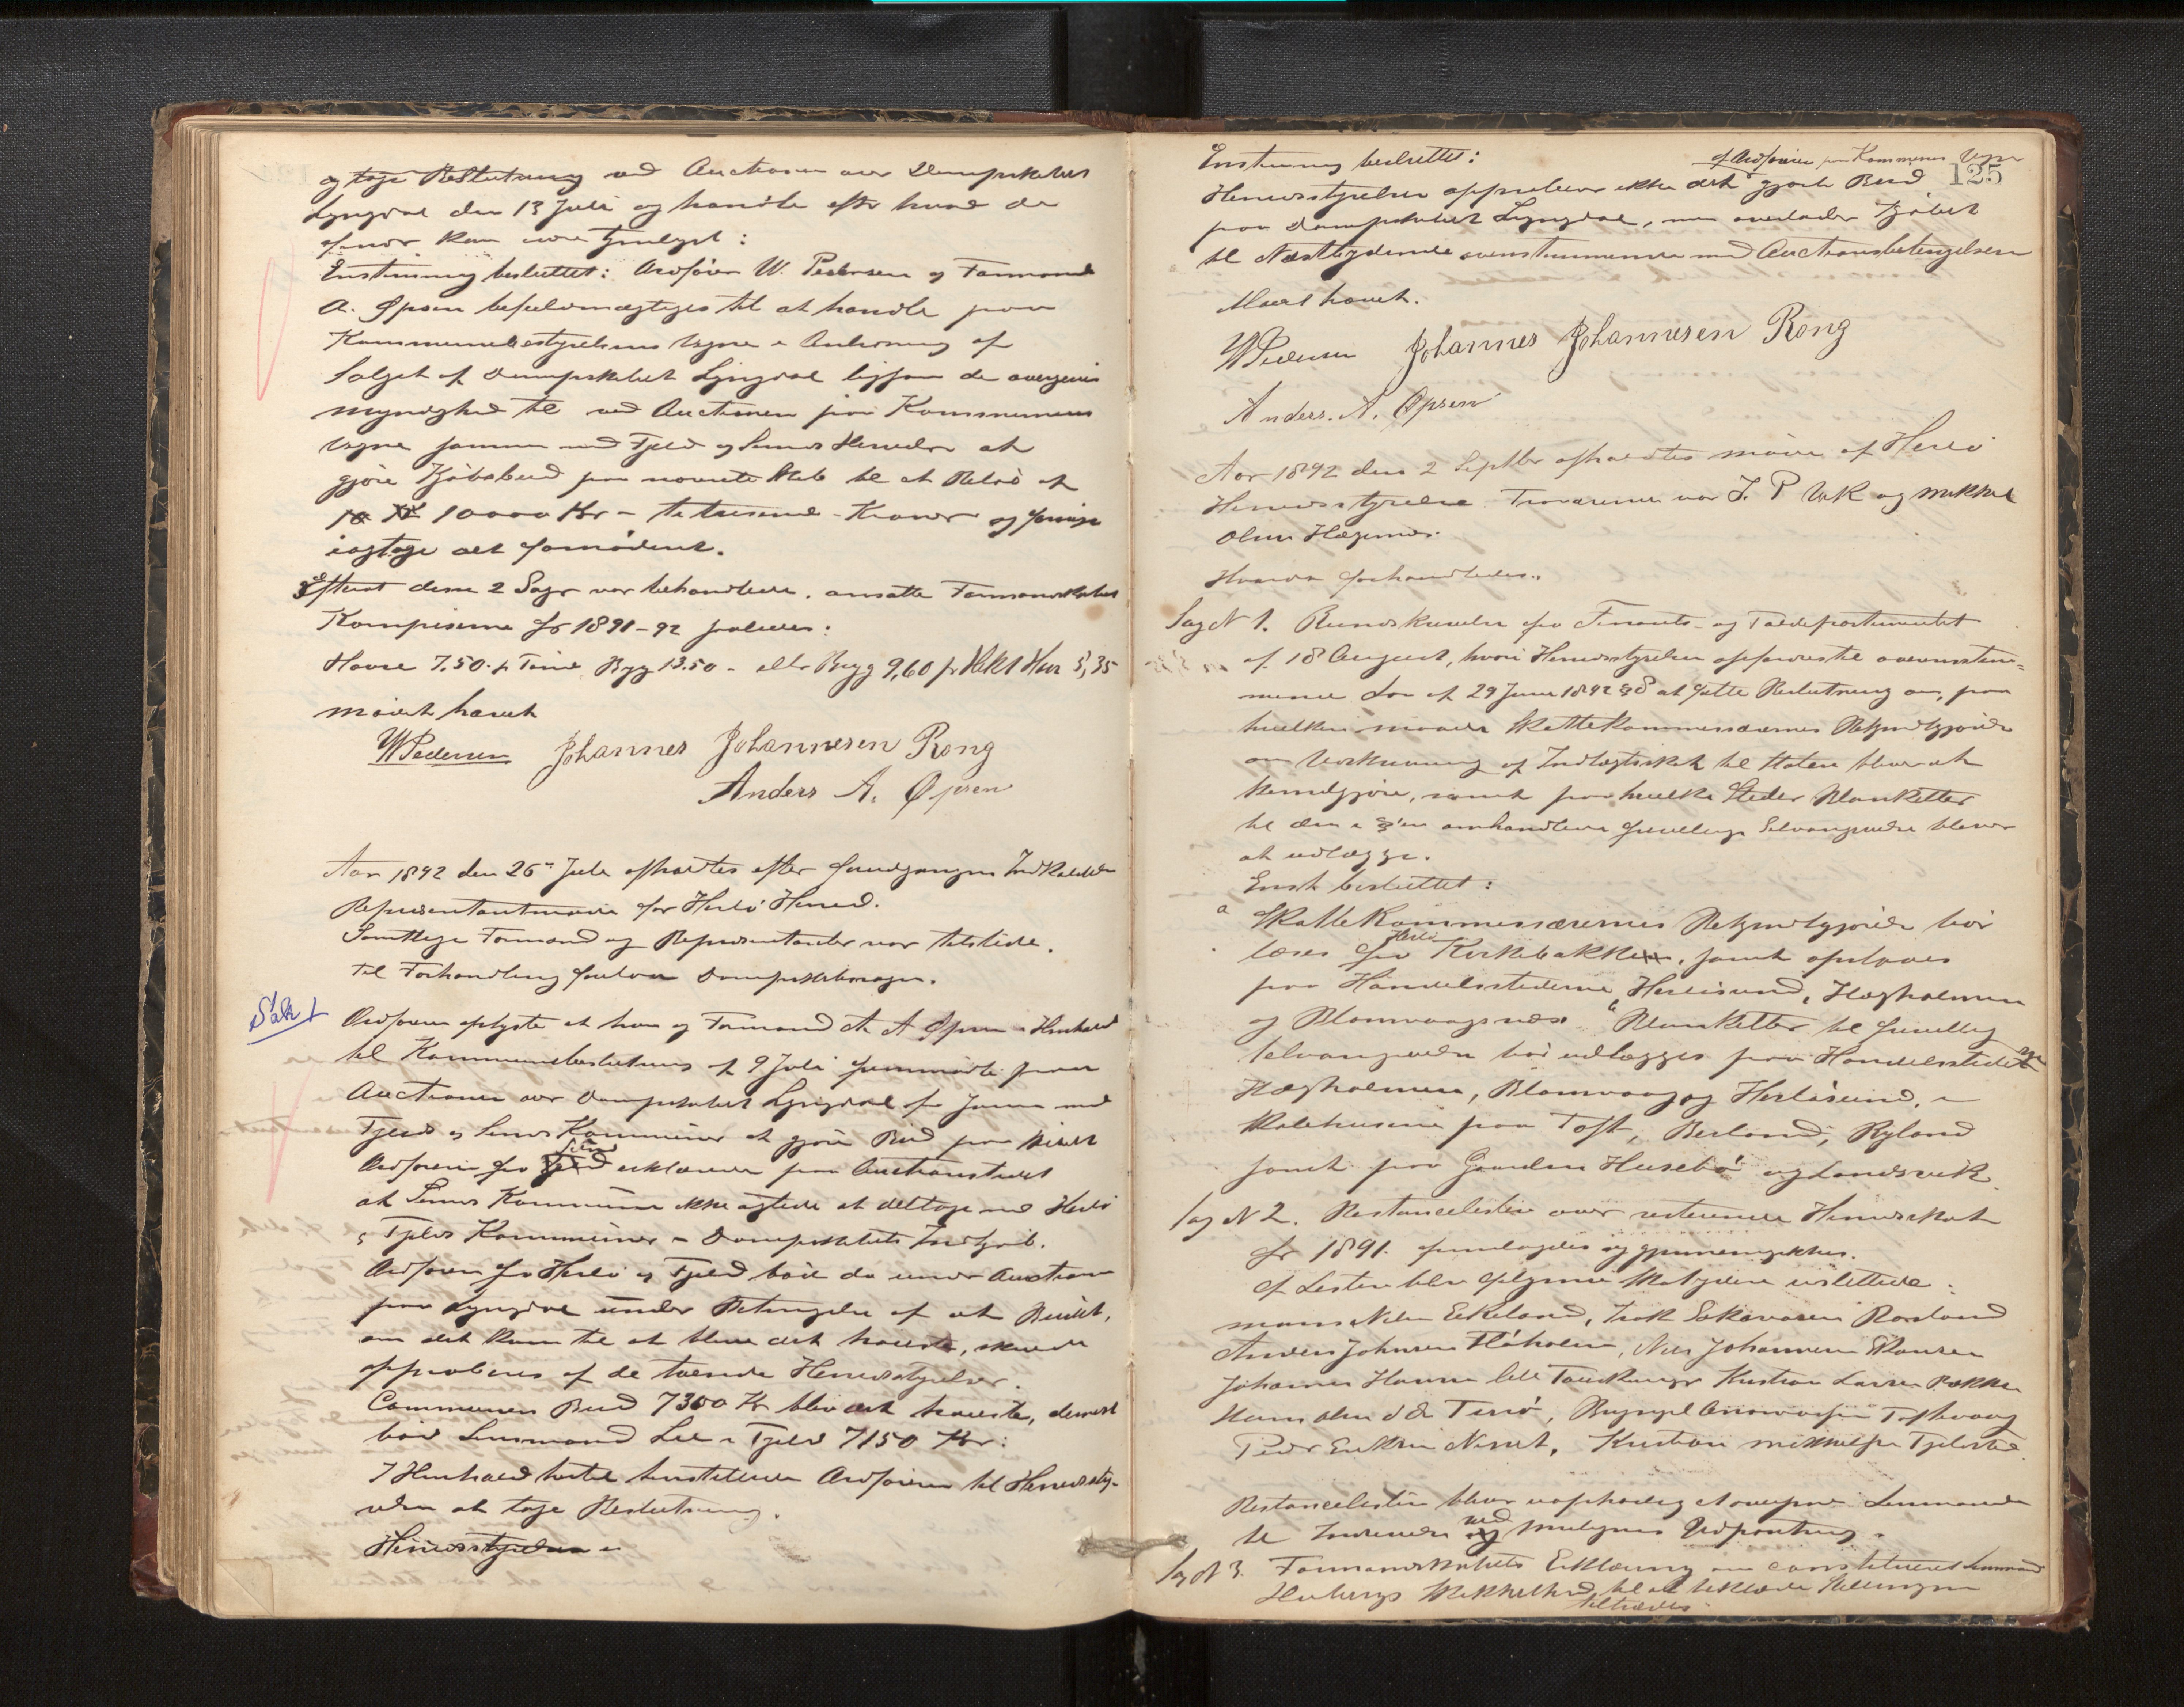 og tage Beslutning ved Auctionen over Dampskibet
Lyngdal den 13 Juli og handle efter hvad de
finder kan være tjenligst:
Enstemmig besluttet: Ordfører W. Pedersen og Formand
A. Øpsen befuldmægtiges til at handle paa
Kommunebestyrelsens Vegne i Anledning af
Salget af Dampskibet Lyngdal ligesom de overgives
Myndighed til ved Auctionen paa Kommunens
Vegne sammen med Fjeld og Sunds Herreder at
gjøre Kjøbsbud paa nævnte Skib til et Beløb af
10000 Kr – titusende Kroner og forøvrigt
iagttage det fornødent.
Efterat disse 2 Sager var behandlede, ansatte Formandskabet
Kornpriserne for 1891-92 saaledes:
Havre 7.50 pr Tønde Byg 13.50 – eller Byg 9,60 pr Hekt Havr 5,35
Mødet hævet
WPedersen Johannes Johannesen Rong
Anders A. Øpsen
Aar 1892 den 26de Juli afholdtes efter forudgangen Indkaldelse
Repræsentantmøde for Herlø Herred.
Samtlige Formænd og Repræsentanter var tilstede.
Til Forhandling forelaa Dampskibssagen.
Sak 1
Ordføreren oplyste at han og Formand A A Øpsen i Henhold
til Kommunebeslutning af 9 Juli fremmødte paa
Auctionen over Dampskibet Lyngdal for sammen med
Fjelds og Sunds Kommuner at gjøre Bud paa Skibet
Ordføreren fra Sund erklærede paa Auctionsstedet
at Sunds Kommune ikke agtede at deltage med Herlø
og Fjelds Kommuner i Dampskibets Indkjøb.
Ordføreren fra Herlø og Fjeld bød da under Auctionen
paa Lyngdal under Betingelse af at Budet,
om det kom til at blive det høieste, skulde
approberes af de tvende Herredsstyrelser.
Communens Bud 7300 Kr blev det høieste, dernæst
bød Lensmand Lie i Fjeld 7150 Kr:
I Henhold hertil henstillede Ordføreren til Herredssty-
relsen at tage Beslutning.
Herredsstyrelsen
125
Enstemmig besluttet:
af Ordføreren paa Kommunens Vegne
Herredsstyrelsen approberer ikke det gjorte Bud
paa Dampskibet Lyngdal, men overlader Kjøbet
til Næstbydende overensstemmende med Auctionsbetingelsen
Mødet hævet.
WPedersen Johannes Johannesen Rong
Anders. A. Øpsen
Aar 1892 den 2 Septbr afholdtes møde af Herlø
Herredsstyrelse. Fraværende var J. P. Vik og Mikkel
Olsen Hægernes.
Hvorda forhandledes:
Sag N 1. Rundskrivelse fra Finants- og Tolddepartementet
af 18 August, hvori Herredsstyrelsen opfordres til overensstem=
mende Lov af 29 Juni 1892 § 8 at fatte Beslutning om, paa
hvilken maade Skattekommissærernes Bekjendtgjørelse
om Udskrivning af Indtægtsskat til Staten bliver at
kundgjøre, samt paa hvilke Steder Blanketter
til den i §'en omhandlede frivillige Selvangivelse bliver
at udlægge.
Enst besluttet:
a Skattekommissærernes Bekjendtgjørelse bør
læses fra Herlø Kirkebakke, samt opslaaes
paa Handelsstederne Herløsund, Hægholmen
og Blomvaagnæs. Blanketter til frivillig
selvangivelse bør udlægges paa Handelsstederne
Hægholmen, Blomvaag og Herløsund, i
Skolehusene paa Toft, Berland, Ryland
samt paa Gaarden Husebø og Landsvik.
Sag N 2. Restancelisten over resterende Herredsskat
for 1891. fremlagdes og gjennemgikkes.
Af Listen blev følgende Skatydere udslettede:
Mons Nilsen Eikeland,
Anders Johnsen Flåholm, Nils Johannesen
Peder Eriksen
Restancelisten bliver uopholdelig at overgive Lensmanden
til Inddrivelse ved muligens Udpantning.
Sag N 3. Formandskabets Erklæring om constitueret Lensmand
til at beklæde Stillingen
tiltrædes